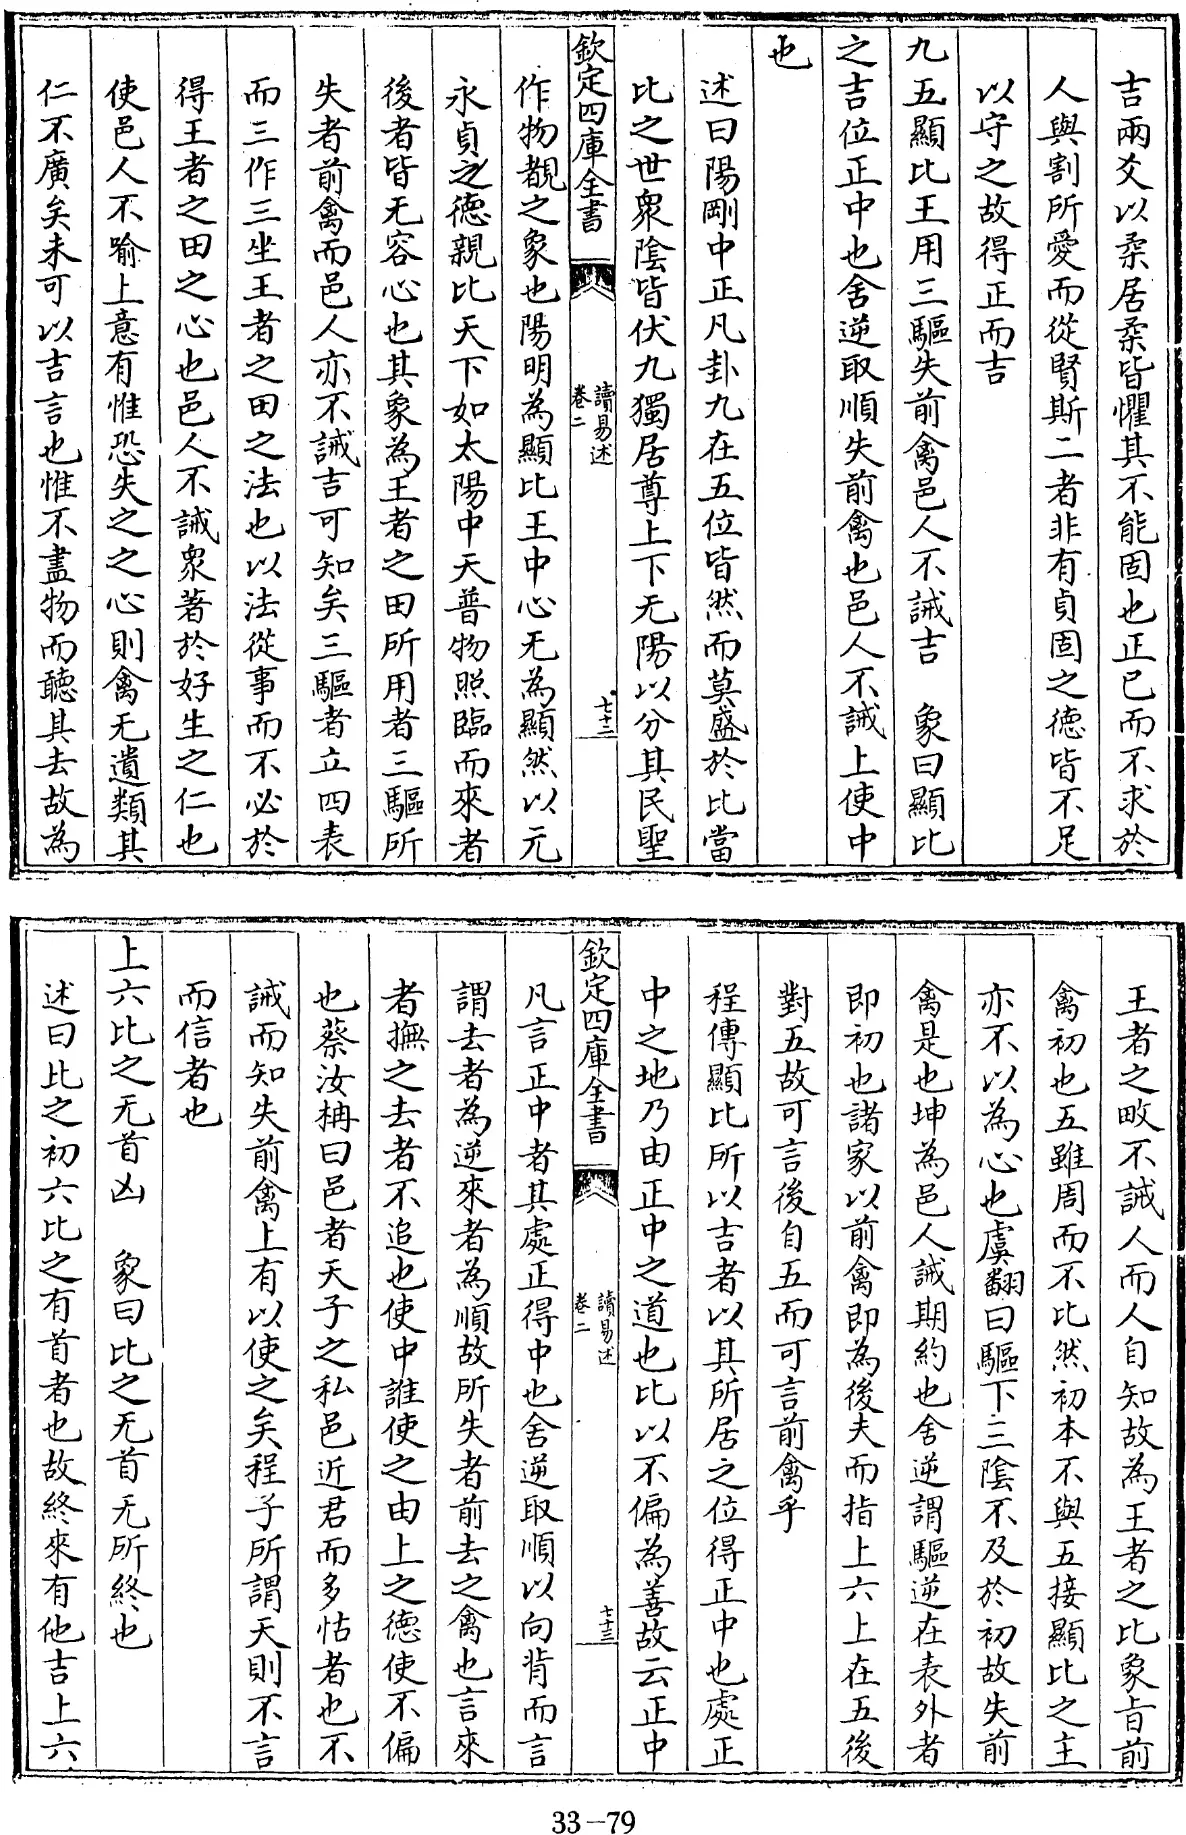 吉兩爻以柔居柔皆懼其不能固也正已而不求於
人與割所愛而從賢斯二者非有貞固之德皆不足
以守之故得正而吉
九五顯比王用三驅失前禽邑人不誡吉　象曰顯比
之吉位正中也舍逆取順失前禽也邑人不誡上使中
也
述曰陽剛中正凡卦九在五位皆然而莫盛於比當
比之世衆陰皆伏九獨居尊上下无陽以分其民聖
欽定四庫全書
讀易述
卷二
七十二
作物覩之象也陽明為顯比王中心无為顯然以元
永貞之德親比天下如太陽中天普物照臨而來者
後者皆无容心也其象為王者之田所用者三驅所
失者前禽而邑人亦不誡吉可知矣三驅者立四表
而三作三坐王者之田之法也以法從事而不必於
得王者之田之心也邑人不誡衆著於好生之仁也
使邑人不喻上意有惟恐失之之心則禽无遺類其
仁不廣矣未可以吉言也惟不盡物而聽其去故為
王者之畋不誡人而人自知故為王者之比象旨前
禽初也五雖周而不比然初本不與五接顯比之主
亦不以為心也虞翻曰驅下三陰不及於初故失前
禽是也坤為邑人誡期約也舍逆謂驅逆在表外者
即初也諸家以前禽即為後夫而指上六上在五後
對五故可言後自五而可言前禽乎
程傳顯比所以吉者以其所居之位得正中也處正
中之地乃由正中之道也比以不偏為善故云正中
欽定四庫全書
讀易述
卷二
七十三
凡言正中者其處正得中也舍逆取順以向背而言
謂去者為逆來者為順故所失者前去之禽也言來
者撫之去者不追也使中誰使之由上之德使不偏
也蔡汝柟曰邑者天子之私邑近君而多怙者也不
誡而知失前禽上有以使之矣程子所謂天則不言
而信者也
上六比之无首凶　象曰比之无首无所終也
述曰比之初六比之有首者也故終來有他吉上六
33-79